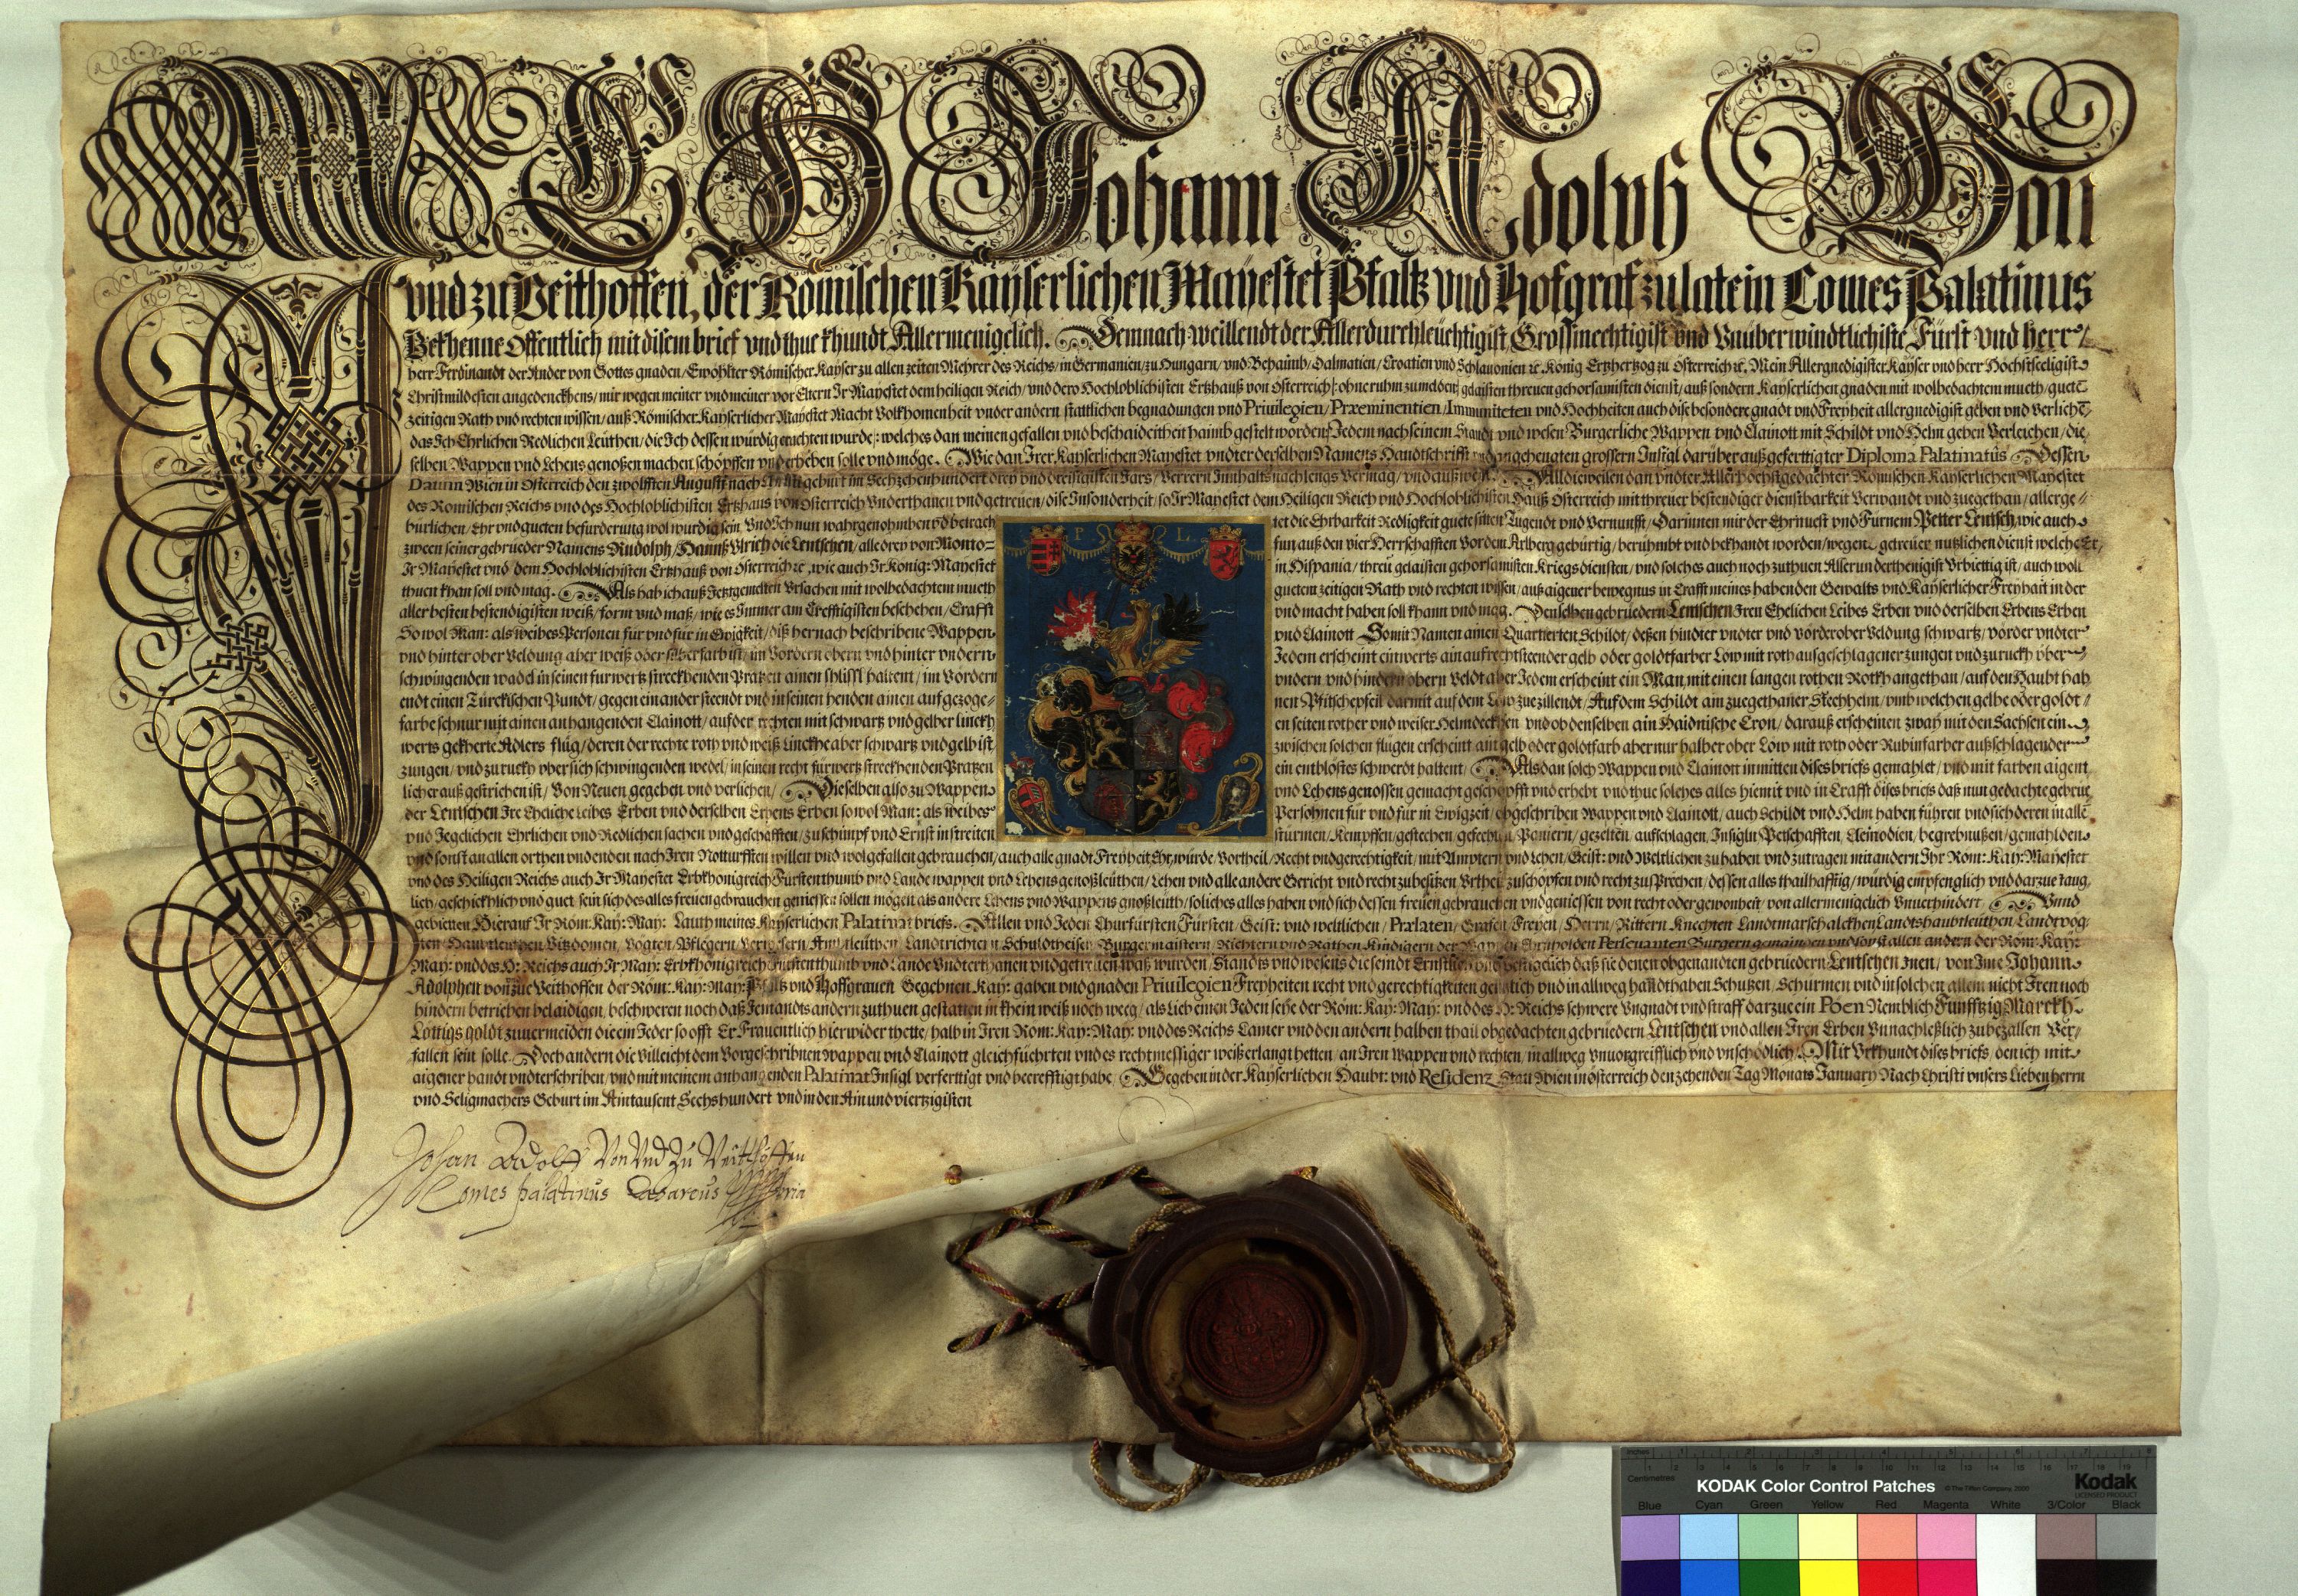 ICH Johann Adolph Von
vnd zu Veithoffen, der Römischen Kayserlichen Mayestet Pfaltz vnd Hofgraf zu latein Comes Palatinus
Bekhenne Offentlich mit disem brief vnd thue khundt Allermenigclich. Demnach weillendt der Allerdurchleuchtigist, Grossmechtigist vnd Vnüberwindtlichiste Fürst vnd herr
herr Ferdinandt der Ander von Gottes gnaden / Erwöhlter Römischer Kayser zu allen zeiten Mehrer des Reichs / in Germanien / zu Hungarn / vnd Behaimb / Dalmatien / Croatien vnd Schlauonien ꝛc. König Ertzhertzog zu Österreich ꝛc. Mein Allergnedigister Kayser vnd herr Hochstseeligist
Christmildesten angedenckhens / mir wegen meiner vnd meiner vor Eltern Ir Mayestet dem heiligen Reich / vnd dero Hochloblichisten Ertzhauß von Österreich / ohne ruhm zumelden / gelaisten threuen gehorsamisten dienst / auß sondern Kayserlichen gnaden mit wolbedachtem mueth / guete
zeitigen Rath vnd rechten wissen / auß Römischer Kayserlicher Mayestet Macht Volkhomenheit vnder andern stattlichen begnadungen vnd Priuilegien / Præeminentien / Immuniteten vnd Hochheiten auch dise besondere gnadt vnd Freyheit allergnedigist geben vnd verliche
das Ich Ehrlichen Redlichen Leüthen / die Ich dessen würdig erachten wurde: welches dan meinen gefallen vnd beschaidenheit haimb gestelt worden / Jedem nach seinem Standt vnd wesen Burgerliche Wappen vnd Clainott mit Schildt vnd Helm geben Verleichen / die
selben Wappen vnd Lehens genoßen machen schöpffen vnd erheben solle vnd möge. Wie dan Irer Kayserlichen Mayestet vndter derselben Namens Handtschrifft vnd angehengten grossern Insigl darüber außgefertigter Diploma Palatinatus Dessen
Datum Wien in Österreich den zwölfften Augusti nach Christi geburt im Sechzehenhundert drey vnd dreisigisten Jars / verrern Innhalts nach lengs vermag / vnd außweist. Alldieweilen dan vndter Allerhöchstgedachter Römischen Kayserlichen Mayestet
des Römischen Reichs vnd des Hochloblichisten Ertzhaus von Österreich Vnderthanen vnd getreuen / dise Insonderheit / so Ir Mayestet dem Heiligen Reich vnd Hochloblichisten Hauß Österreich mit threuer bestendiger dienstbarkeit Verwandt vnd zuegethan / allerge
bürlichen / Ehr vnd gueten befürderung wol würdig sein Vnd Ich nun wahrgenohmben vnd betrach
tet die Ehrbarkeit Redligkeit guete sitten Tugendt vnd Vernunfft / Darinnen mir der Ehrnuest vnd Fürnem Petter Lentsch, wie auch
zween seiner gebrüeder Namens Rudolph / Hannß Vlrich die Lentschen / alle drey von Monto
fun auß den vier Herrschafften vor dem Arlberg gebürtig / berühmbt vnd bekhandt worden / wegen getreuer nutzlichen dienst welche Er
Ir Mayestet vnd dem Hochloblichisten Ertzhauß von Österreich ꝛc, wie auch Ir König: Mayestet
in Hispania / threu gelaisten gehorsamisten Kriegsdiensten / vnd solches auch noch zuthuen Allerunderthenigist Vrbiettig ist / auch woll
thuen khan soll vnd mag. Als hab ich auß Jetztgemelten Vrsachen mit wolbedachtem mueth
guetem zeitigen Rath vnd rechten wissen / auß aigener bewegnus in Crafft meines habenden Gewalts vnd Kayserlicher Freyhait in der
aller besten bestendigisten weiß / form vnd maß / wie es Immer am Crefftigisten beschehen / Crafft
vnd macht haben soll khann vnd mag. Denselben gebrüedern Lentschen Iren Ehelichen Leibes Erben vnd derselben Erbens Erben
So wol Man: als weibes Personen für vnd für in Ewigkeit / diß hernach beschribene Wappen
vnd Clainott Somit Namen ainen Quartierten Schildt / deßen hindter vndter vnd vorder ober Veldung schwartz / vorder vndter
vnd hinter ober Veldung aber weiß oder silberfarb ist / im Vordern obern vnd hinter vndern
Jedem erscheint einwerts ain aufrechtsteender gelb oder goldtfarber Löw mit roth außgeschlagener zungen vnd zuruckh über
schwingenden wadel in seinen furwertz streckhenden Pratzen ainen schlissl haltent / im Vordern
vndern vnd hindern obern Veldt aber Jedem erscheint ein Man, mit einen langen rothen Rockh angethan / auf den Haubt hab
endt einen Türckischen Pundt / gegen einander steendt vnd in seinen henden ainen aufgezoge
nen Pfitschepfeil darmit auf dem Löw zuezillendt / Auf dem Schildt am zuegethaner Stechhelm / vmb welchen gelbe oder goldt
farbe schnur mit ainen anhangenden Clainott / auf der rechten mit schwartz vnd gelber linckh
en seiten rother vnd weiser Helmdeckhen vnd ob denselben ain Haidnische Cron / darauß erscheinen zway mit den Sachsen ein
werts gekherte Adlers flüg / deren der rechte roth vnd weiß linckhe aber schwartz vnd gelb ist
zwischen solchen flügen erscheint ain gelb oder goldtfarb aber nur halber ober Löw mit roth oder Rubinfarber außschlagender
zungen / vnd zuruckh übersich schwingenden wedel / in seinen recht fürwertz streckhenden Pratzen
ein entblöstes schwerdt haltent / Als dan solch Wappen vnd Clainott in mitten dises briefs gemahlet / vnd mit farben aigent
licher auß gestrichen ist / Von Neuen gegeben vnd verlichen / Dieselben also zu Wappen
vnd Lehens genossen gemacht geschöpfft vnd erhebt vnd thue solches alles hiemit vnd in Crafft dises briefs daß nun gedachte gebrüe
der Lentschen Ire Eheliche Leibes Erben vnd derselben Erbens Erben so wol Man: als weibes
Persohnen für vnd für in Ewigzeit / obgeschriben Wappen vnd Clainott / auch Schildt vnd Helm haben führen vnd sich deren in alle
vnd Jegclichen Ehrlichen vnd Redlichen sachen vnd geschäfften / zu schimpf vnd Ernst in streiten
stürmen / Kempffen / gestechen gefechten / Paniern / gezelten aufschlagen / Insigln Petschafften / Cleinodien / begrebnußen / gemählden
vnd sonst an allen orthen vnd enden nach Iren Notturfften willen vnd wolgefallen gebrauchen / auch alle gnadt Freyheit Ehr, würde / Vortheil / Recht vnd gerechtigkeit / mit Ämptern vnd Lehen / Geist: vnd Weltlichen zu haben vnd zutragen mit andern Ihr Röm: Kay: Mayestet
vnd des Heiligen Reichs auch Ir Mayestet Erbkhönigreich Fürstenthumb vnd Lande wappen vnd Lehens genoßleüthen / Lehen vnd alle andere Gericht vnd recht zubesitzen Vrtheil zuschöpfen vnd recht zusprechen / dessen alles thailhafftig / würdig empfenglich vnd darzue taug
lich / geschickhlich vnd guet sein sich des alles freuen gebrauchen geniessen sollen mögen als andere Lehens vnd Wappens gnoßleüth / soliches alles haben vnd sich dessen freüen gebrauchen vnd geniessen von recht oder gewonheit / von allermenigclich Vnuerhindert Vnnd
gebieten Hierauf Ir Röm: Kay: May: Lauth meines Kayserlichen Palatinat briefs. Allen vnd Jeden Churfürsten Fürsten Geist: vnd weltlichen / Prælaten / Grafen / Freyen / Herrn / Rittern Knechten Landtmarschalckhen Landtshaubtleüthen Landtvög
ten Haubtleüthen Vitzdomen, Vögten Pflegern / Verwesern / Ambtleüthen / Landtrichtern Schuldtheisen / Burgermaistern / Richtern vnd Räthen Kündigern der Wappen Ehrnholden Perseuanten Burgern gemainden vnd sonst allen andern der Röm: Kay:
May: vnd des H: Reichs auch Ir May: Erbkhönigreich Fürstenthumb vnd Lande Vndterthanen vnd getreüen waß würden / Standts vnd wesens die seindt Ernstlich vnd vestigclich daß sie denen obgenandten gebrüedern Lentschen Inen / von Ime Johann
Adolphen von vnd zue Veithoffen der Röm: Kay: May: Pfaltz vnd Hoffgrauen Gegebnen Kay: gaben vnd gnaden Priuilegien Freyheiten recht vnd gerechtigkeiten genzlich vnd in allweg handthaben Schutzen / schürmen vnd in solchen allem nicht Iren noch
hindern betrieben belaidigen / beschweren noch daß Jemandts andern zuthuen gestatten in khein weiß noch weeg / als Lieb einen Jeden seÿe der Röm: Kay: May: vnd des H: Reichs schwere Vngnadt vnd straff darzue ein Pöen Nemblich Funffzig Marckh
Löttigs goldt zuuermeiden die ein Jeder so offt Er Frauentlich hierwider thette / halb in Iren Röm: Kay: May: vnd des Reichs Camer vnd den andern halben thail obgedachten gebrüedern Lentschen vnd allen Iren Erben Vnnachleßlich zubezallen Ver
fallen sein solle. Doch andern die villeicht dem Vorgeschribnen wappen vnd Clainott gleich füehrten vnd es rechtmessiger weiß erlangt hetten / an Iren wappen vnd rechten / in allweg vnuorgreifflich vnd vnschedlich. Mit Vrkhundt dises briefs, den ich mit
aigener handt vndterschriben / vnd mit meinem anhangenden Palatinat Insigl verfertigt vnd becrefftigt habe / Gegeben in der Kayserlichen Haubt: vnd Residenz Statt Wien in Österreich den zehenden Tag Monats January Nach Christi vnsers Lieben herrn
vnd Seligmachers Geburt im Aintausent Sechshundert vnd in den Ain und viertzigisten
P L
Johan Adolff Von Vnd Zu Veitthoffen
Comes palatinus Cæsareus
inches 1 2 3 4 5 6 7 8
Centimetres 1 2 3 4 5 6 7 8 9 10 11 12 13 14 15 16 17 18 19
KODAK Color Control Patches © The Tiffen Company, 2000 Kodak
LICENSED PRODUCT
Blue Cyan Green Yellow Red Magenta White 3/Color Black